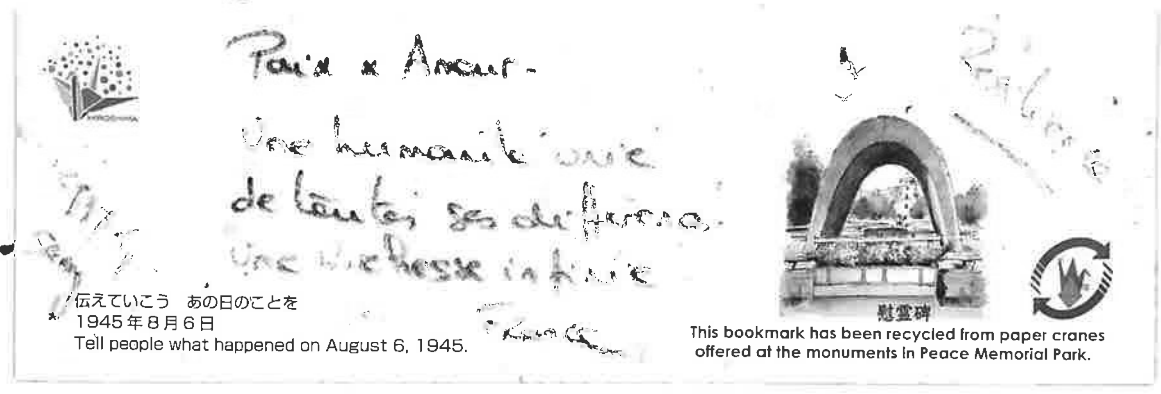 HIROSHIMA
Paix x Amour -
Une humanité unie
de toutes ses différenc
une richesse infinie
France
伝えていこう あの日のことを
1945年8月6日
Tell people what happened on August 6, 1945.
慰霊碑
This bookmark has been recycled from paper cranes
offered at the monuments in Peace Memorial Park.